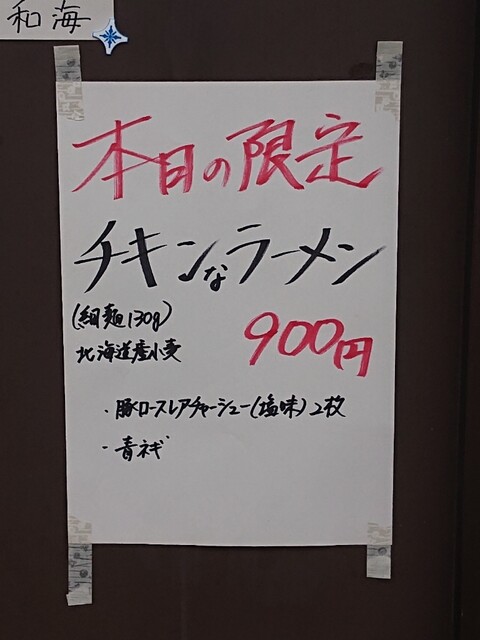 和海
本日の限定
チキンなラーメン
(細麺130g)
900円
北海道産小麦
・豚ロースレアチャーシュー(塩味)2枚
・青ネギ